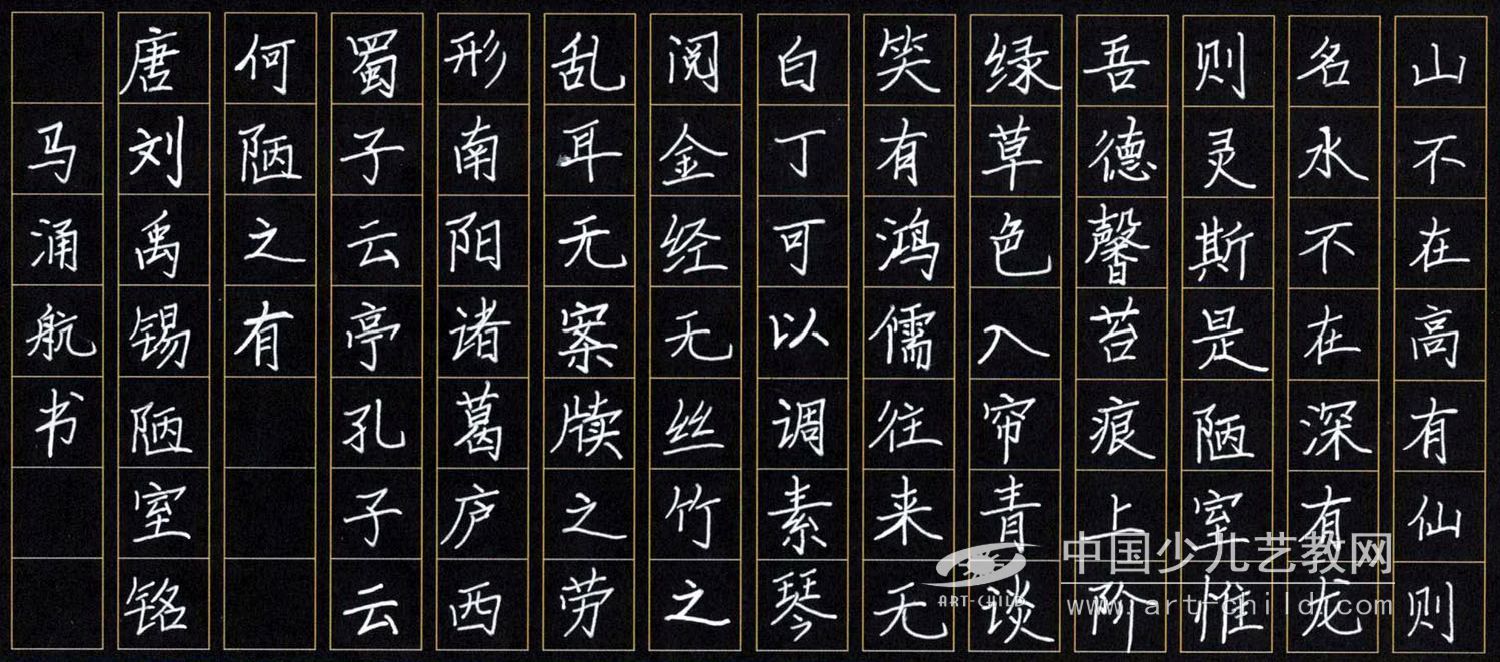 山不在高有仙则
名水不在深有龙
则灵斯是陋室惟
吾德馨苔痕上阶
绿草色入帘青谈
笑有鸿儒往来无
白丁可以调素琴
阅金经无丝竹之
乱耳无案牍之劳
形南阳诸葛庐西
蜀子云亭孔子云
何陋之有
唐刘禹锡陋室铭
马涌航书
中国少儿艺教网
ART-CHILD
www.art-child.com